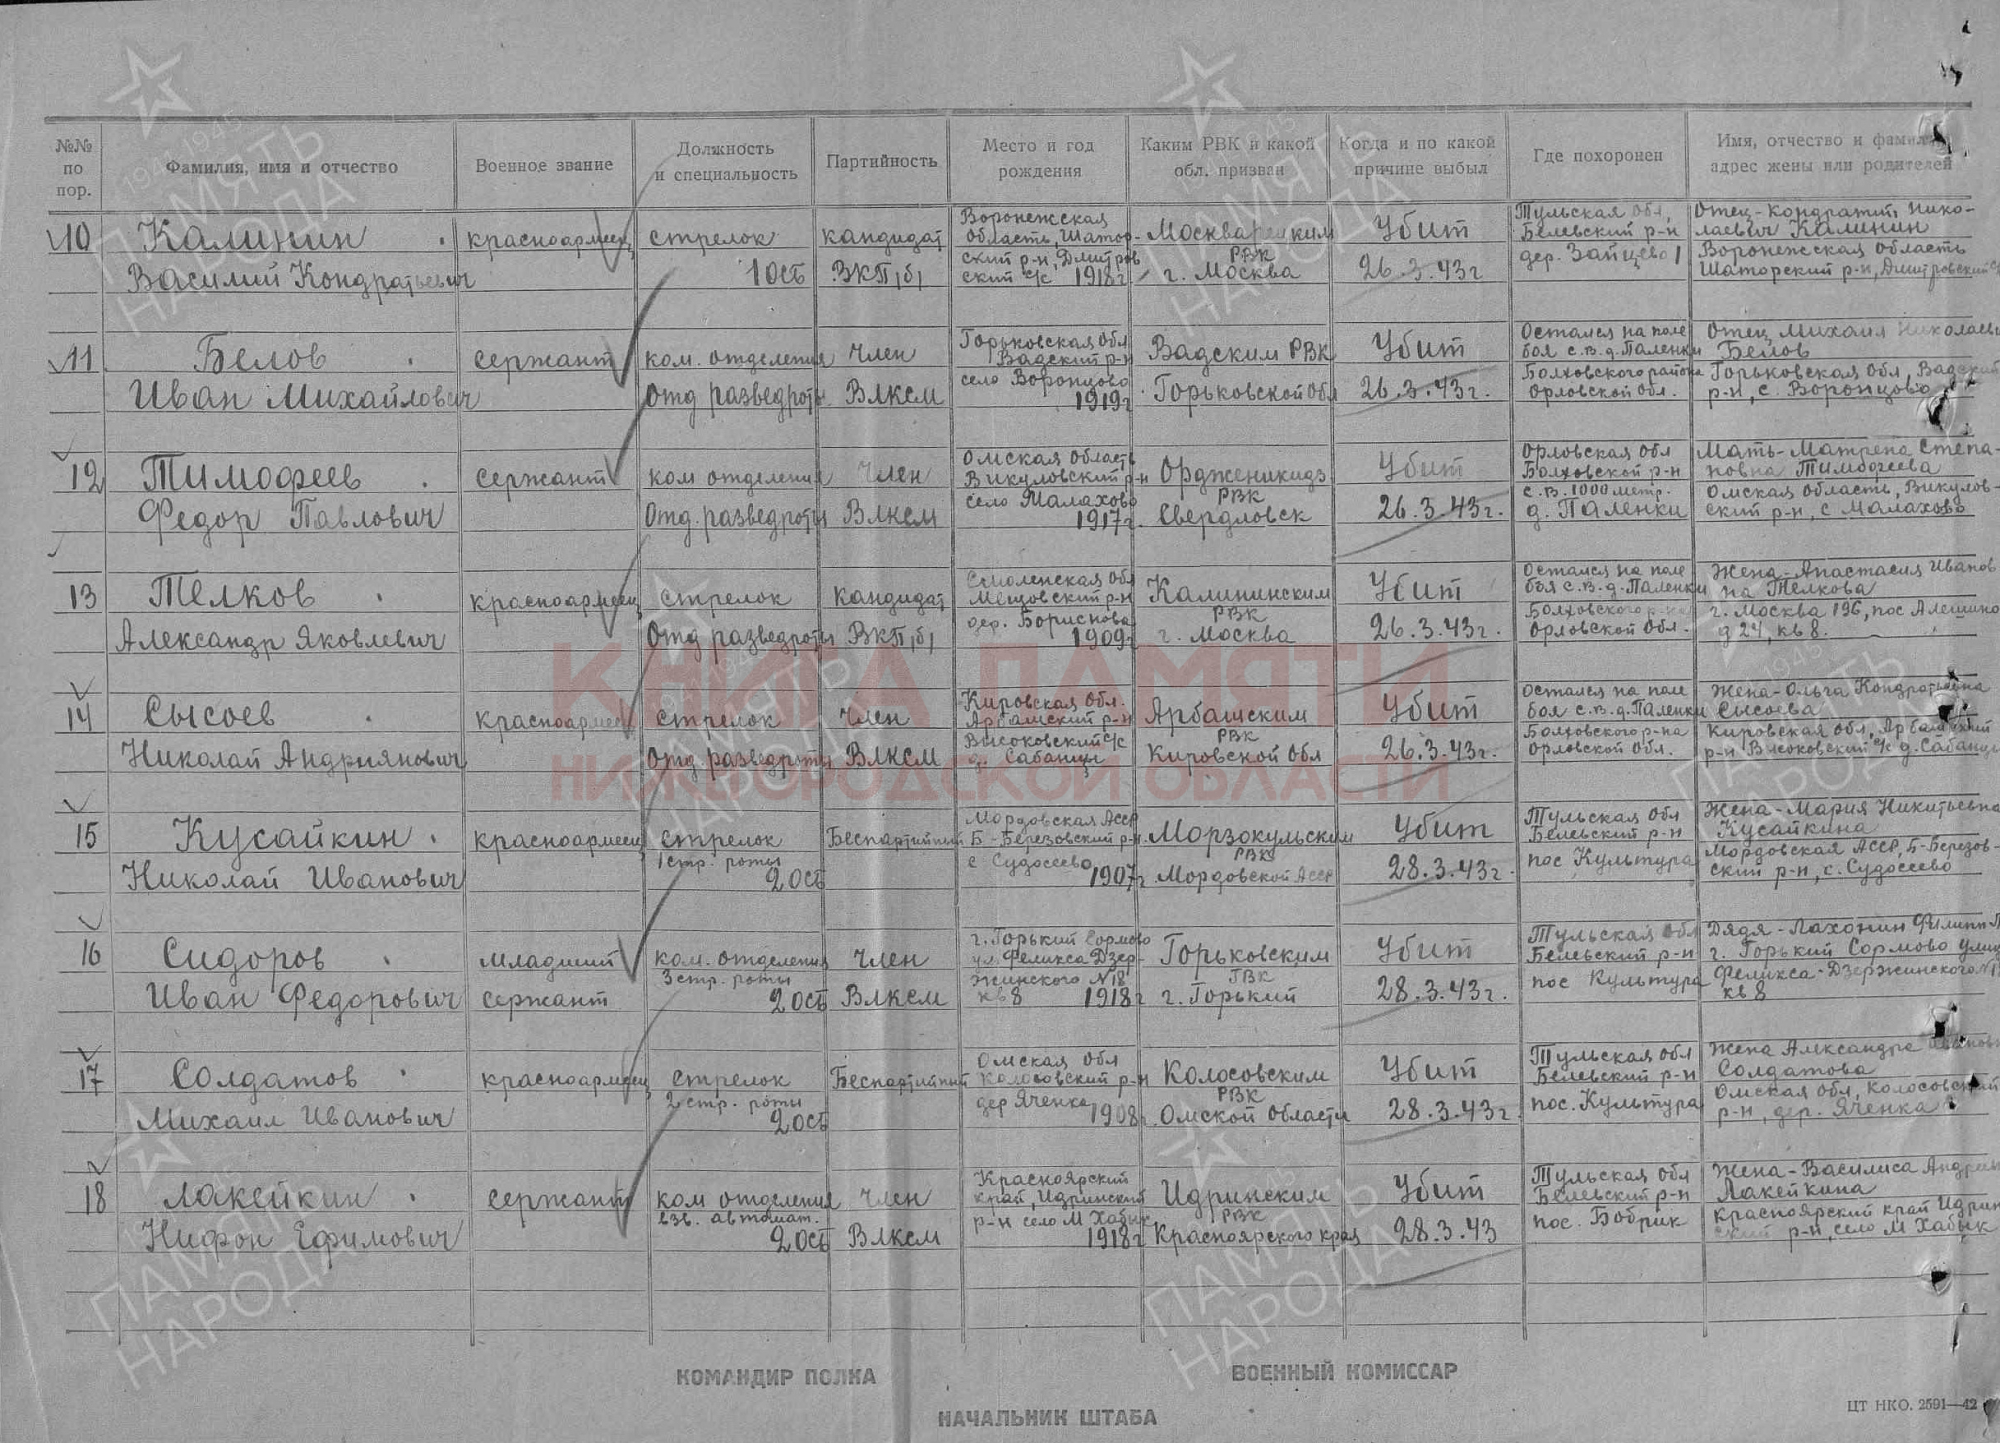 №№ по пор.
Фамилия, имя и отчество
Военное звание
Должность и специальность
Партийность
Место и год рождения
Каким РВК и какой обл. призван
Когда и по какой причине выбыл
Где похоронен
Имя, отчество и фамилия адрес жены или родителей
10
Калинин
Василий Кондратьевич
красноармеец
стрелок
1 ОСБ
кандидат
ВКП(б)
Воронежская
область, Шатор-
ский р-н, Дмитров
ский с/с 1918г
Москварецким
РВК
г. Москва
Убит
26.3.43г
Тульская обл,
Белевский р-н
дер. Зайцево 1
Отец-Кондратий Нико-
лаевич Калинин
Воронежская область
Шаторский р-н, Дмитровский с/с
11
Белов
Иван Михайлович
сержант
ком. отделения
Отд разведроты
Член
Влксм
Горьковская обл
Вадский р-н
село Воронцово
1919г
Вадским РВК
Горьковской обл
Убит
26.3.43г.
Остался на поле
боя с.в.д. Паленки
Болховского района
Орловской обл.
Отец Михаил Николаеви
Белов
Горьковская обл, Вадский
р-н, с. Воронцово
12
Тимофеев
Федор Павлович
сержант
ком отделения
Отд. разведроты
Член
Влксм
Омская область
Викуловский р-н
село Малахово
1917г.
Ордженикидз
РВК
Свердловск
Убит
26.3.43г.
Орловская обл
Болховской р-н
с.в. 1000 метр.
д. Паленки
Мать-Матрена Степа-
новна Тимофеева
Омская область, Викулов-
ский р-н, с Малахово
13
Телков
Александр Яковлевич
красноармеец
стрелок
Отд разведроты
кандидат
ВКП(б)
Смоленская обл
Мещовский р-н
дер. Бориснова
1909г
Калининским
РВК
г. Москва
Убит
26.3.43г.
Остался на поле
боя с.в.д. Паленки
Болховского р-на
Орловской обл.
Жена-Анастасия Иванов
на Телкова
г. Москва 196, пос Алешино
д 24, кв 8.
14
Сысоев
Николай Андриянович
красноармеец
стрелок
Отд. разведроты
Член
Влксм
Кировская обл.
Арбашский р-н
Высоковский с/с
д. Сабанцы
Арбашским
РВК
Кировской обл
Убит
26.3.43г.
Остался на поле
боя с.в.д. Паленки
Болховского р-на
Орловской обл.
Жена-Ольга Кондратьевна
Сысоева
Кировская обл, Арбашский
р-н, Высоковский с/с д. Сабанцы
15
Кусайкин
Николай Иванович
красноармеец
стрелок
1 стр. роты
2 ОСБ
Беспартийный
Мордовская АССР
Б-Березовский р-н
с Судосеево
1907г
Морзокульским
РВК
Мордовской АССР
Убит
28.3.43г.
Тульская обл
Белевский р-н
пос Культура
Жена-Мария Никитьевна
Кусайкина
Мордовская АССР, Б-Березов-
ский р-н, с. Судосеево
16
Сидоров
Иван Федорович
младший
сержант
ком. отделения
3 стр. роты
2 ОСБ
Член
Влксм
г. Горький Сормово
ул. Феликса Дзер-
жинского N18
кв 8 1918г
Горьковским
ГВК
г. Горький
Убит
28.3.43г.
Тульская обл
Белевский р-н
пос Культура
Дядя-Лахонин Филипп
г. Горький Сормово улиц
Феликса-Дзержинского
кв 8
17
Солдатов
Михаил Иванович
красноармеец
стрелок
2 стр. роты
2 ОСБ
Беспартийный
Омская обл
Колосовский р-н
дер Яченка
1908г.
Колосовским
РВК
Омской области
Убит
28.3.43г.
Тульская обл
Белевский р-н
пос. Культура
Жена Александра Ивановн
Солдатова
Омская обл, Колосовский
р-н, дер. Яченка
18
Лакейкин
Нифон Ефимович
сержант
ком отделения
взв. автомат.
2 ОСБ
Член
Влксм
Красноярский
край, Идринский
р-н село М Хабык
1918г
Идринским
РВК
Красноярского края
Убит
28.3.43
Тульская обл
Белевский р-н
пос. Бобрик
Жена-Василиса Андрия
Лакейкина
Красноярский край Идрин
ский р-н, село М Хабык
КОМАНДИР ПОЛКА
ВОЕННЫЙ КОМИССАР
НАЧАЛЬНИК ШТАБА
ЦТ НКО. 2591—42
КНИГА ПАМЯТИ
НИЖГОРОДСКОЙ ОБЛАСТИ
1941-1945
ПАМЯТЬ
НАРОДА